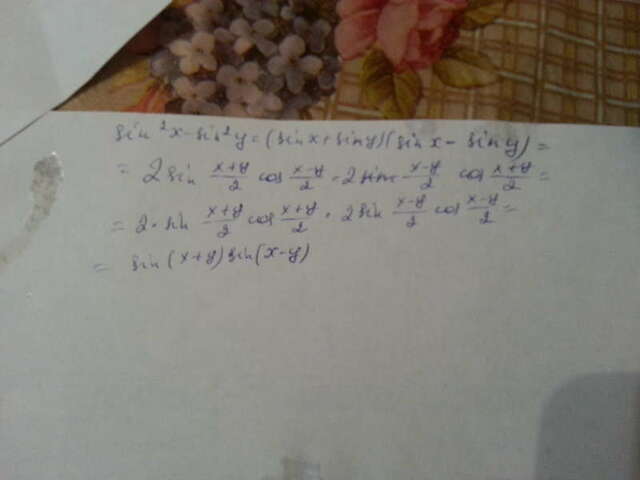 sin²x-sin²y=(sinx+siny)(sin x - sin y)=
= 2 sin (x+y)/2 cos (x-y)/2 · 2 sin (x-y)/2 cos (x+y)/2 =
= 2 · sin (x+y)/2 cos (x+y)/2 · 2 sin (x-y)/2 cos (x-y)/2 =
= sin(x+y) sin(x-y)